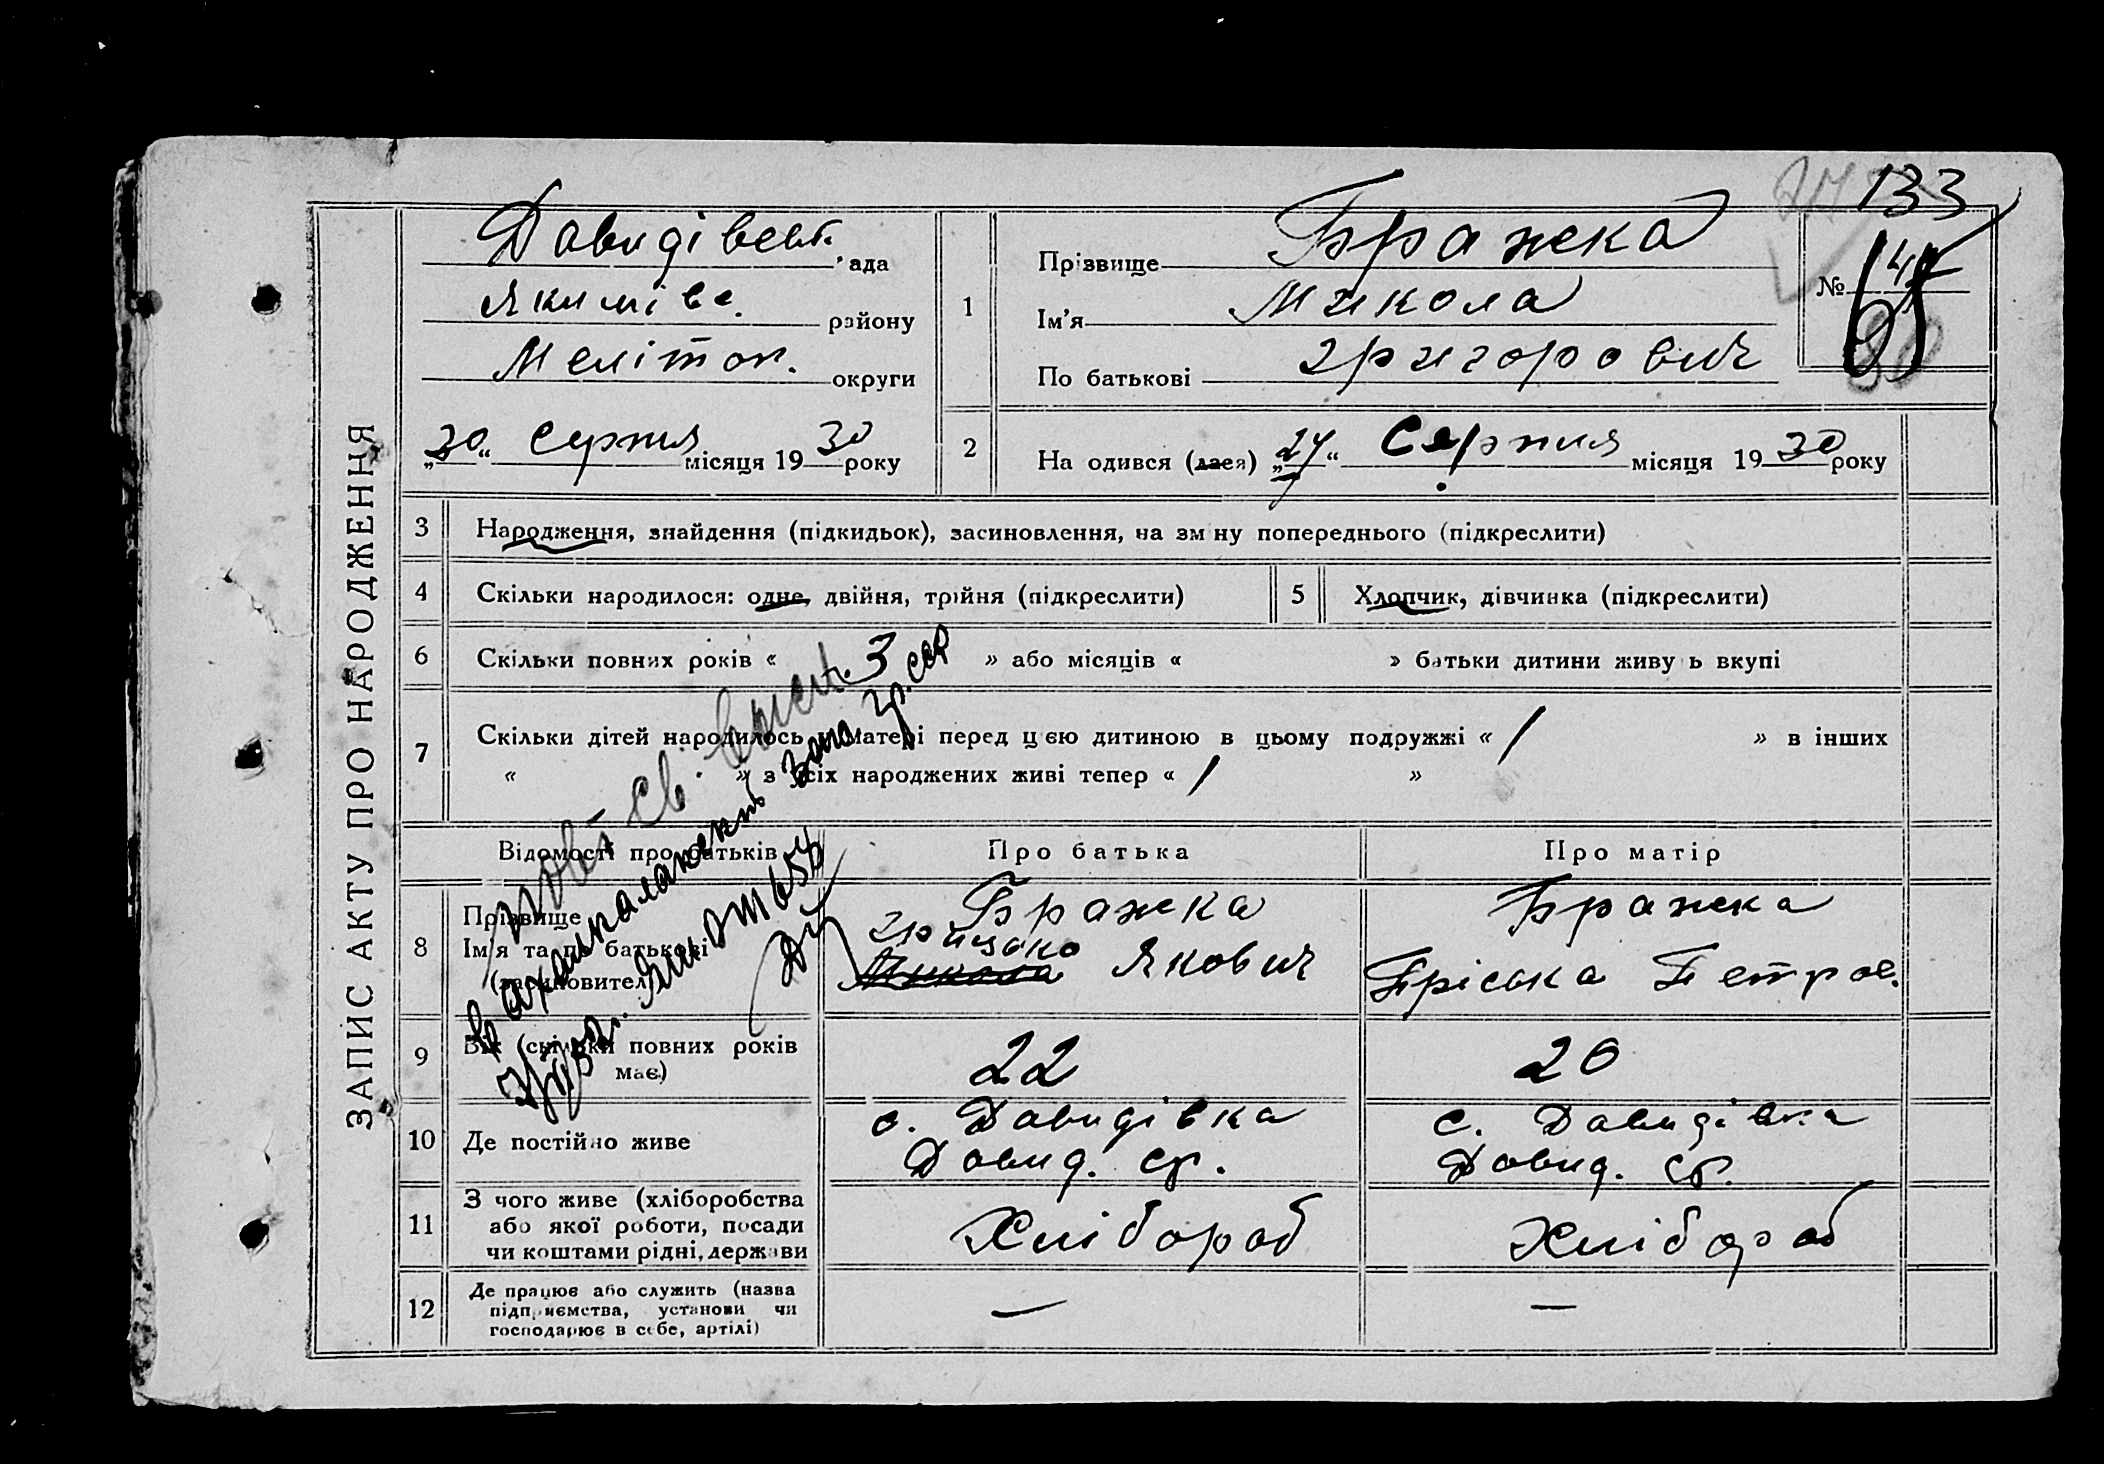 133
ЗАПИС АКТУ ПРО НАРОДЖЕННЯ
Давидівськ. рада
Якиміве. району
Меліттоп. округи
„30“ Серпня місяця 1930 року
1
Прізвище Бражка
Ім’я Микола
По батькові Григорович
№
2
На одився (лася) „27“ Серпня місяця 1930 року
3 Народження, знайдення (підкидьок), засиновлення, на зм ну попереднього (підкреслити)
4 Скільки народилося: одне, двійня, трійня (підкреслити)
5 Хлопчик, дівчинка (підкреслити)
6 Скільки повних років « » або місяців « » батьки дитини живу ь вкупі
7 Скільки дітей народилось у матері перед цією дитиною в цьому подружжі « 1 » в інших
« » з усіх народжених живі тепер « 1 »
Відомості про батьків
Про батька
Про матір
8
Прізвище
Ім’я та по батькові
(засиновителі)
Бражка
Грицько
Микола Якович
Бражка
Пріська Петров.
9
Вік (скільки повних років має)
22
20
10 Де постійно живе
с. Давидівка
Давид. ср.
с. Давидівка
Давид. ср.
11
З чого живе (хліборобства
або якої роботи, посади
чи коштами рідні, держави
Хлібороб
Хлібороб
12
Де працює або служить (назва
підприємства, установи чи
господарює в себе, артілі)
—
—